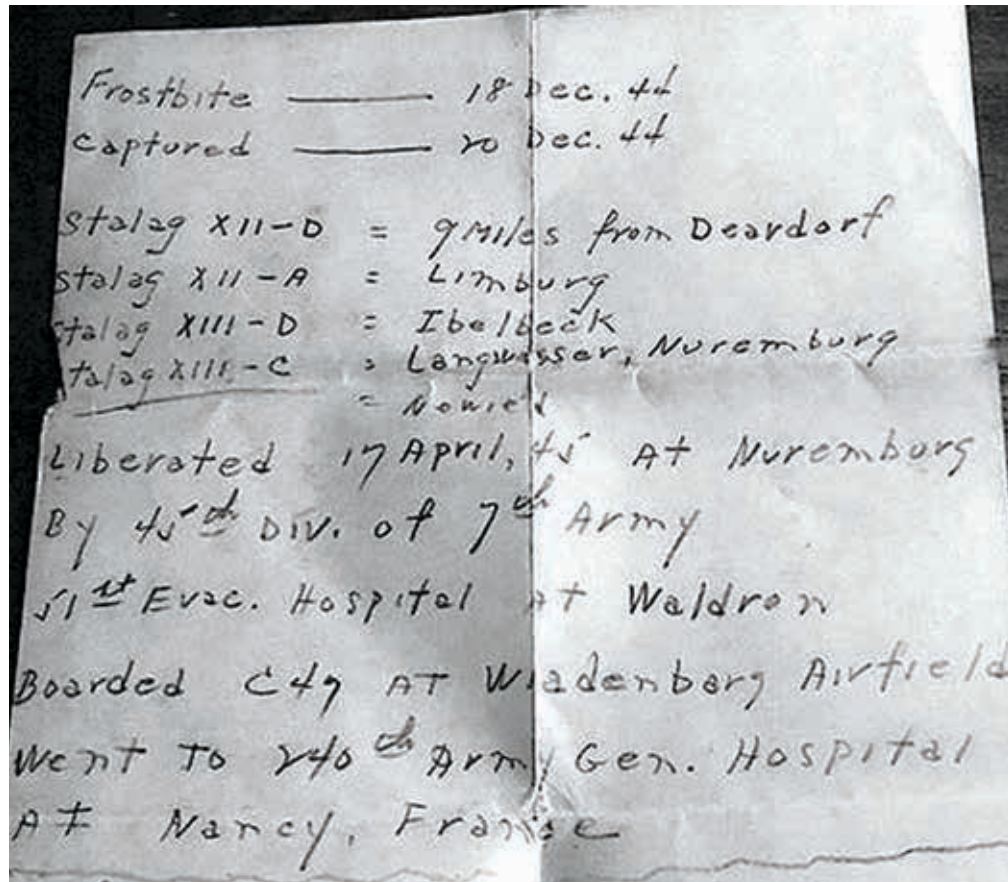 Frostbite —— 18 Dec. 44
Captured —— 20 Dec. 44
Stalag XII-D = 9 Miles from Deardorf
Stalag XII-A = Limburg
Stalag XIII-D = Ibelbeck
talag XIII-C = Langwasser, Nuremburg
=
Liberated 17 April, 45 At Nuremburg
By 45th Div. of 7th Army
51st Evac. Hospital At Waldron
Boarded C47 AT Wladenbarg Airfield
Went To 240th Army Gen. Hospital
At Nancy, France